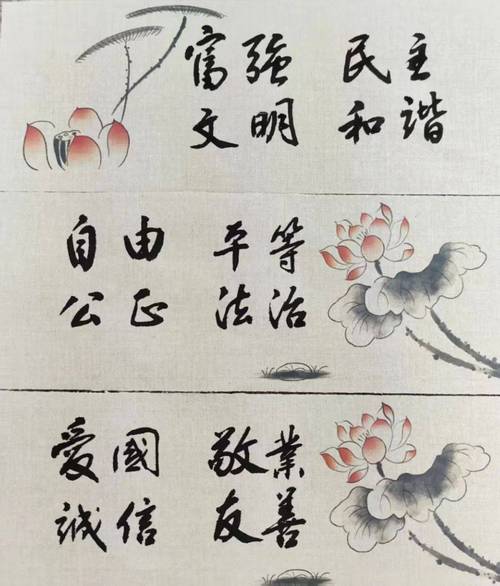 富强 民主
文明 和谐
自由 平等
公正 法治
愛國 敬業
誠信 友善